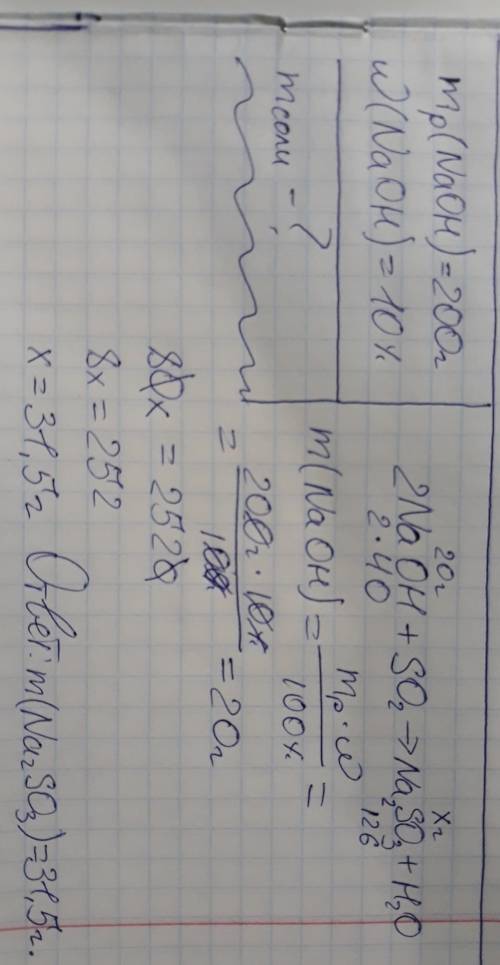 mр(NaOH)=200г
ω(NaOH)=10%
mсоли - ?
20г хг
2NaOH + SO₂ → Na₂SO₃ + H₂O
2·40 126
m(NaOH) = mр·ω / 100% =
= 200г·10% / 100% = 20г
80x = 2520
8x = 252
x = 31,5г Ответ: m(Na₂SO₃)=31,5г.